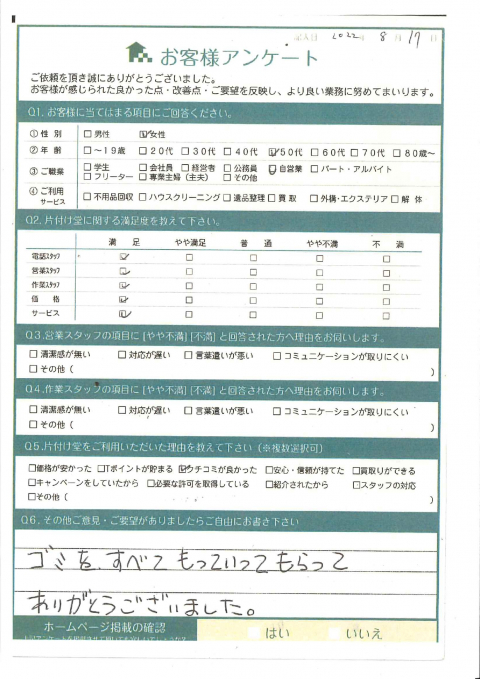 記入日 2022年 8月 17日
お客様アンケート
ご依頼を頂き誠にありがとうございました。
お客様が感じられた良かった点・改善点・ご要望を反映し、より良い業務に努めてまいります。
Q1. お客様に当てはまる項目にご回答ください。
①性 別 □男性 ☑女性
②年 齢 □～19歳 □20代 □30代 □40代 ☑50代 □60代 □70代 □80歳～
③ご職業 □学生 □会社員 □経営者 □公務員 ☑自営業 □パート・アルバイト
□フリーター □専業主婦（主夫） □その他
④ご利用サービス □不用品回収 □ハウスクリーニング □遺品整理 □買取 □外構・エクステリア □解体
Q2. 片付け堂に関する満足度を教えて下さい。
満 足 やや満足 普 通 やや不満 不 満
電話スタッフ ☑ □ □ □ □
営業スタッフ ☑ □ □ □ □
作業スタッフ ☑ □ □ □ □
価 格 ☑ □ □ □ □
サービス ☑ □ □ □ □
Q3. 営業スタッフの項目に [やや不満] [不満] と回答された方へ理由をお伺いします。
□清潔感が無い □対応が遅い □言葉遣いが悪い □コミュニケーションが取りにくい
□その他（ ）
Q4. 作業スタッフの項目に [やや不満] [不満] と回答された方へ理由をお伺いします。
□清潔感が無い □対応が遅い □言葉遣いが悪い □コミュニケーションが取りにくい
□その他（ ）
Q5. 片付け堂をご利用いただいた理由を教えて下さい（※複数選択可）
□価格が安かった □Tポイントが貯まる ☑クチコミが良かった □安心・信頼が持てた □買取りができる
□キャンペーンをしていたから □必要な許可を取得している □紹介されたから □スタッフの対応
□その他（ ）
Q6. その他ご意見・ご要望がありましたらご自由にお書き下さい
ゴミを、すべて もっていって もらって
ありがとうございました。
ホームページ掲載の確認 はい いいえ